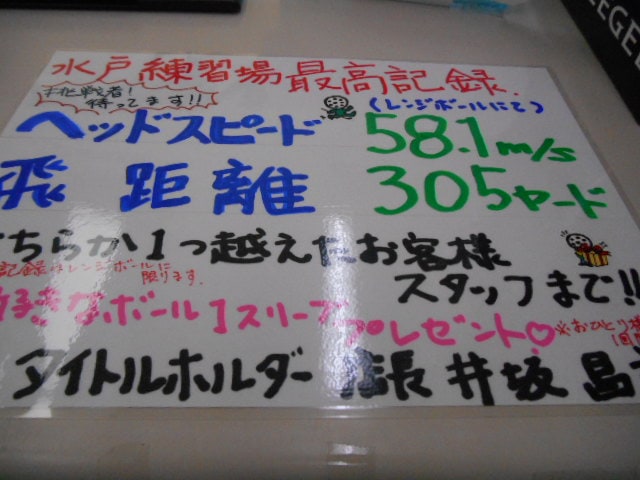 水戸練習場最高記録.
挑戦者!
待ってます!!
(レンジボールにて)
ヘッドスピード 58.1m/s
飛距離 305ヤード
どちらか1つ越えたお客様
記録はレンジボールに
限ります。
スタッフまで!!
好きなボール1スリーブプレゼント♡
※おひとり様
1回
タイトルホルダー 店長 井坂 昌